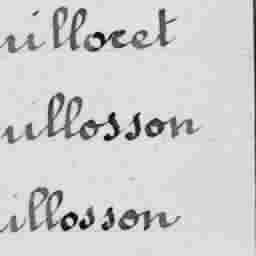 uilloret
uillosson
illosson